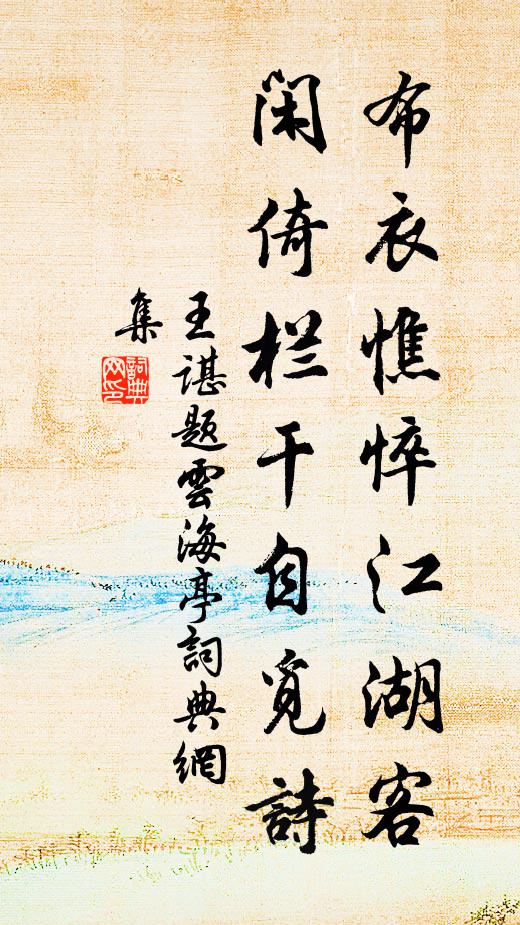 布衣憔悴江湖客
闲倚栏干自觅詩
王諶题雲海亭詞典網
集
詞典
网印